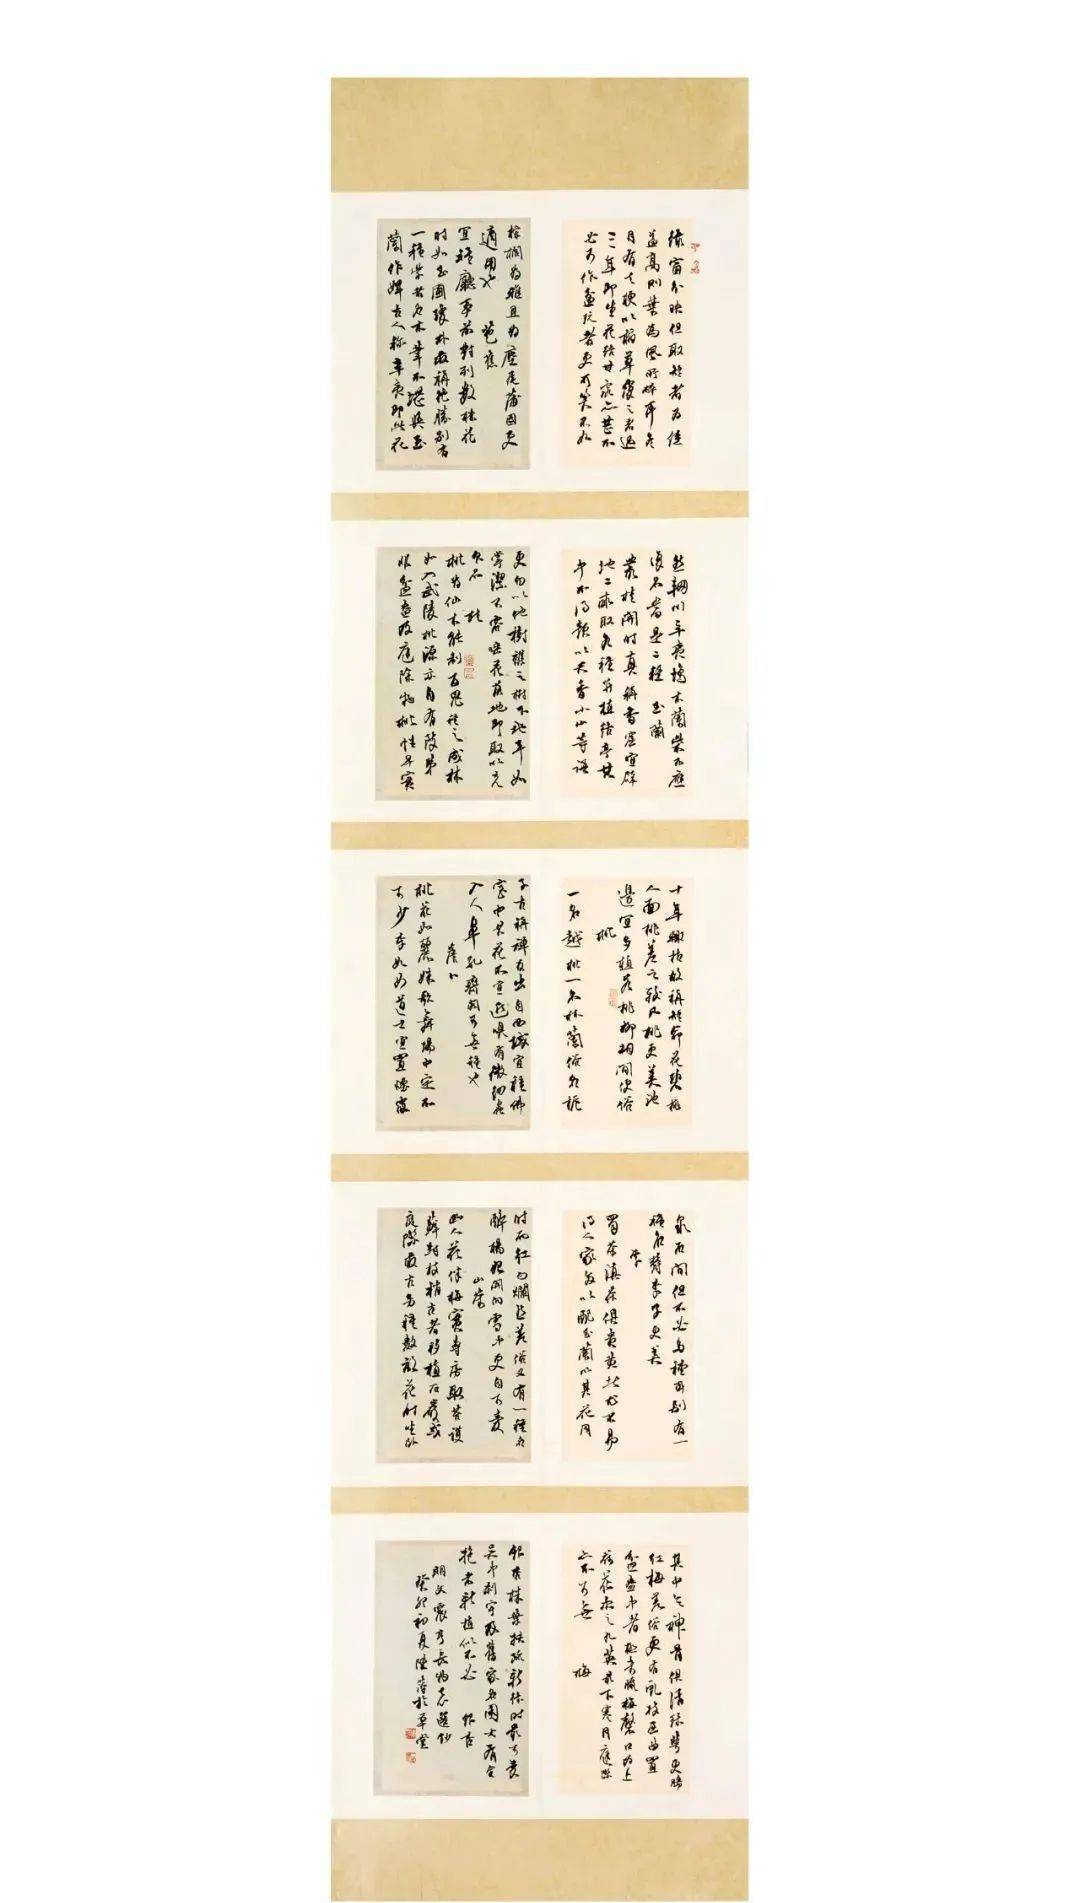 綠窗分映但取短者為佳
蓋高則葉為風所碎耳冬
月有去梗以稻草覆之者過
三年即生花結甘露亦甚不
必又有作盆玩者更可笑不如
棕櫚為雅且為麈尾蒲團更
適用也 芭蕉
宜種廳事前對列數株花
時如玉圃瓊林最稱絕勝別有
一種紫者名木筆不堪與玉
蘭作婢古人稱辛夷即此花
然輞川辛夷塢木蘭柴不應
復名當是二種 玉蘭
叢桂開時真稱香窟宜辟
地二畝取各種并植結亭其
中不得顏以天香小山等語
更勿以他樹雜之樹下地平如
掌潔不容唾花落地即取以充
食品 桂
桃為仙木能制百鬼種之成林
如入武陵桃源亦自有致第
非盆盎及庭除物桃性早實
十年輒枯故稱短命花碧桃
人面桃差之較凡桃更美池
邊宜多植若桃柳相間便俗
桃
一名越桃一名林蘭俗名梔
子古稱禪友出自西域宜種佛
室中其花不宜近嗅有微細蟲
入人鼻孔齋閣可無種也
薝卜
桃花如麗姝歌舞場中定不
可少李如女道士宜置煙霞
泉石間但不必多種耳別有一
種名郁李子更美
李
蜀茶滇茶俱貴黃者尤不易
得人家多以配玉蘭以其花同
時而紅白爛然差俗又有一種名
醉楊妃開向雪中更自可愛
山茶
幽人花伴梅實專房取苔護
蘚封枝稍古者移植石巖或
庭際最古另種數畝花時坐臥
其中令神骨俱清綠萼更勝
紅梅差俗更有虬枝屈曲置
盆盎中者極奇臘梅磬口為上
荷花次之九英最下寒月庭際
亦不可無 梅
銀杏株葉扶疏新綠時最可愛
吳中剎宇及舊家名園大有合
抱者新植似不必 銀杏
明文震亨長物志選鈔
癸卯初夏陸於草堂